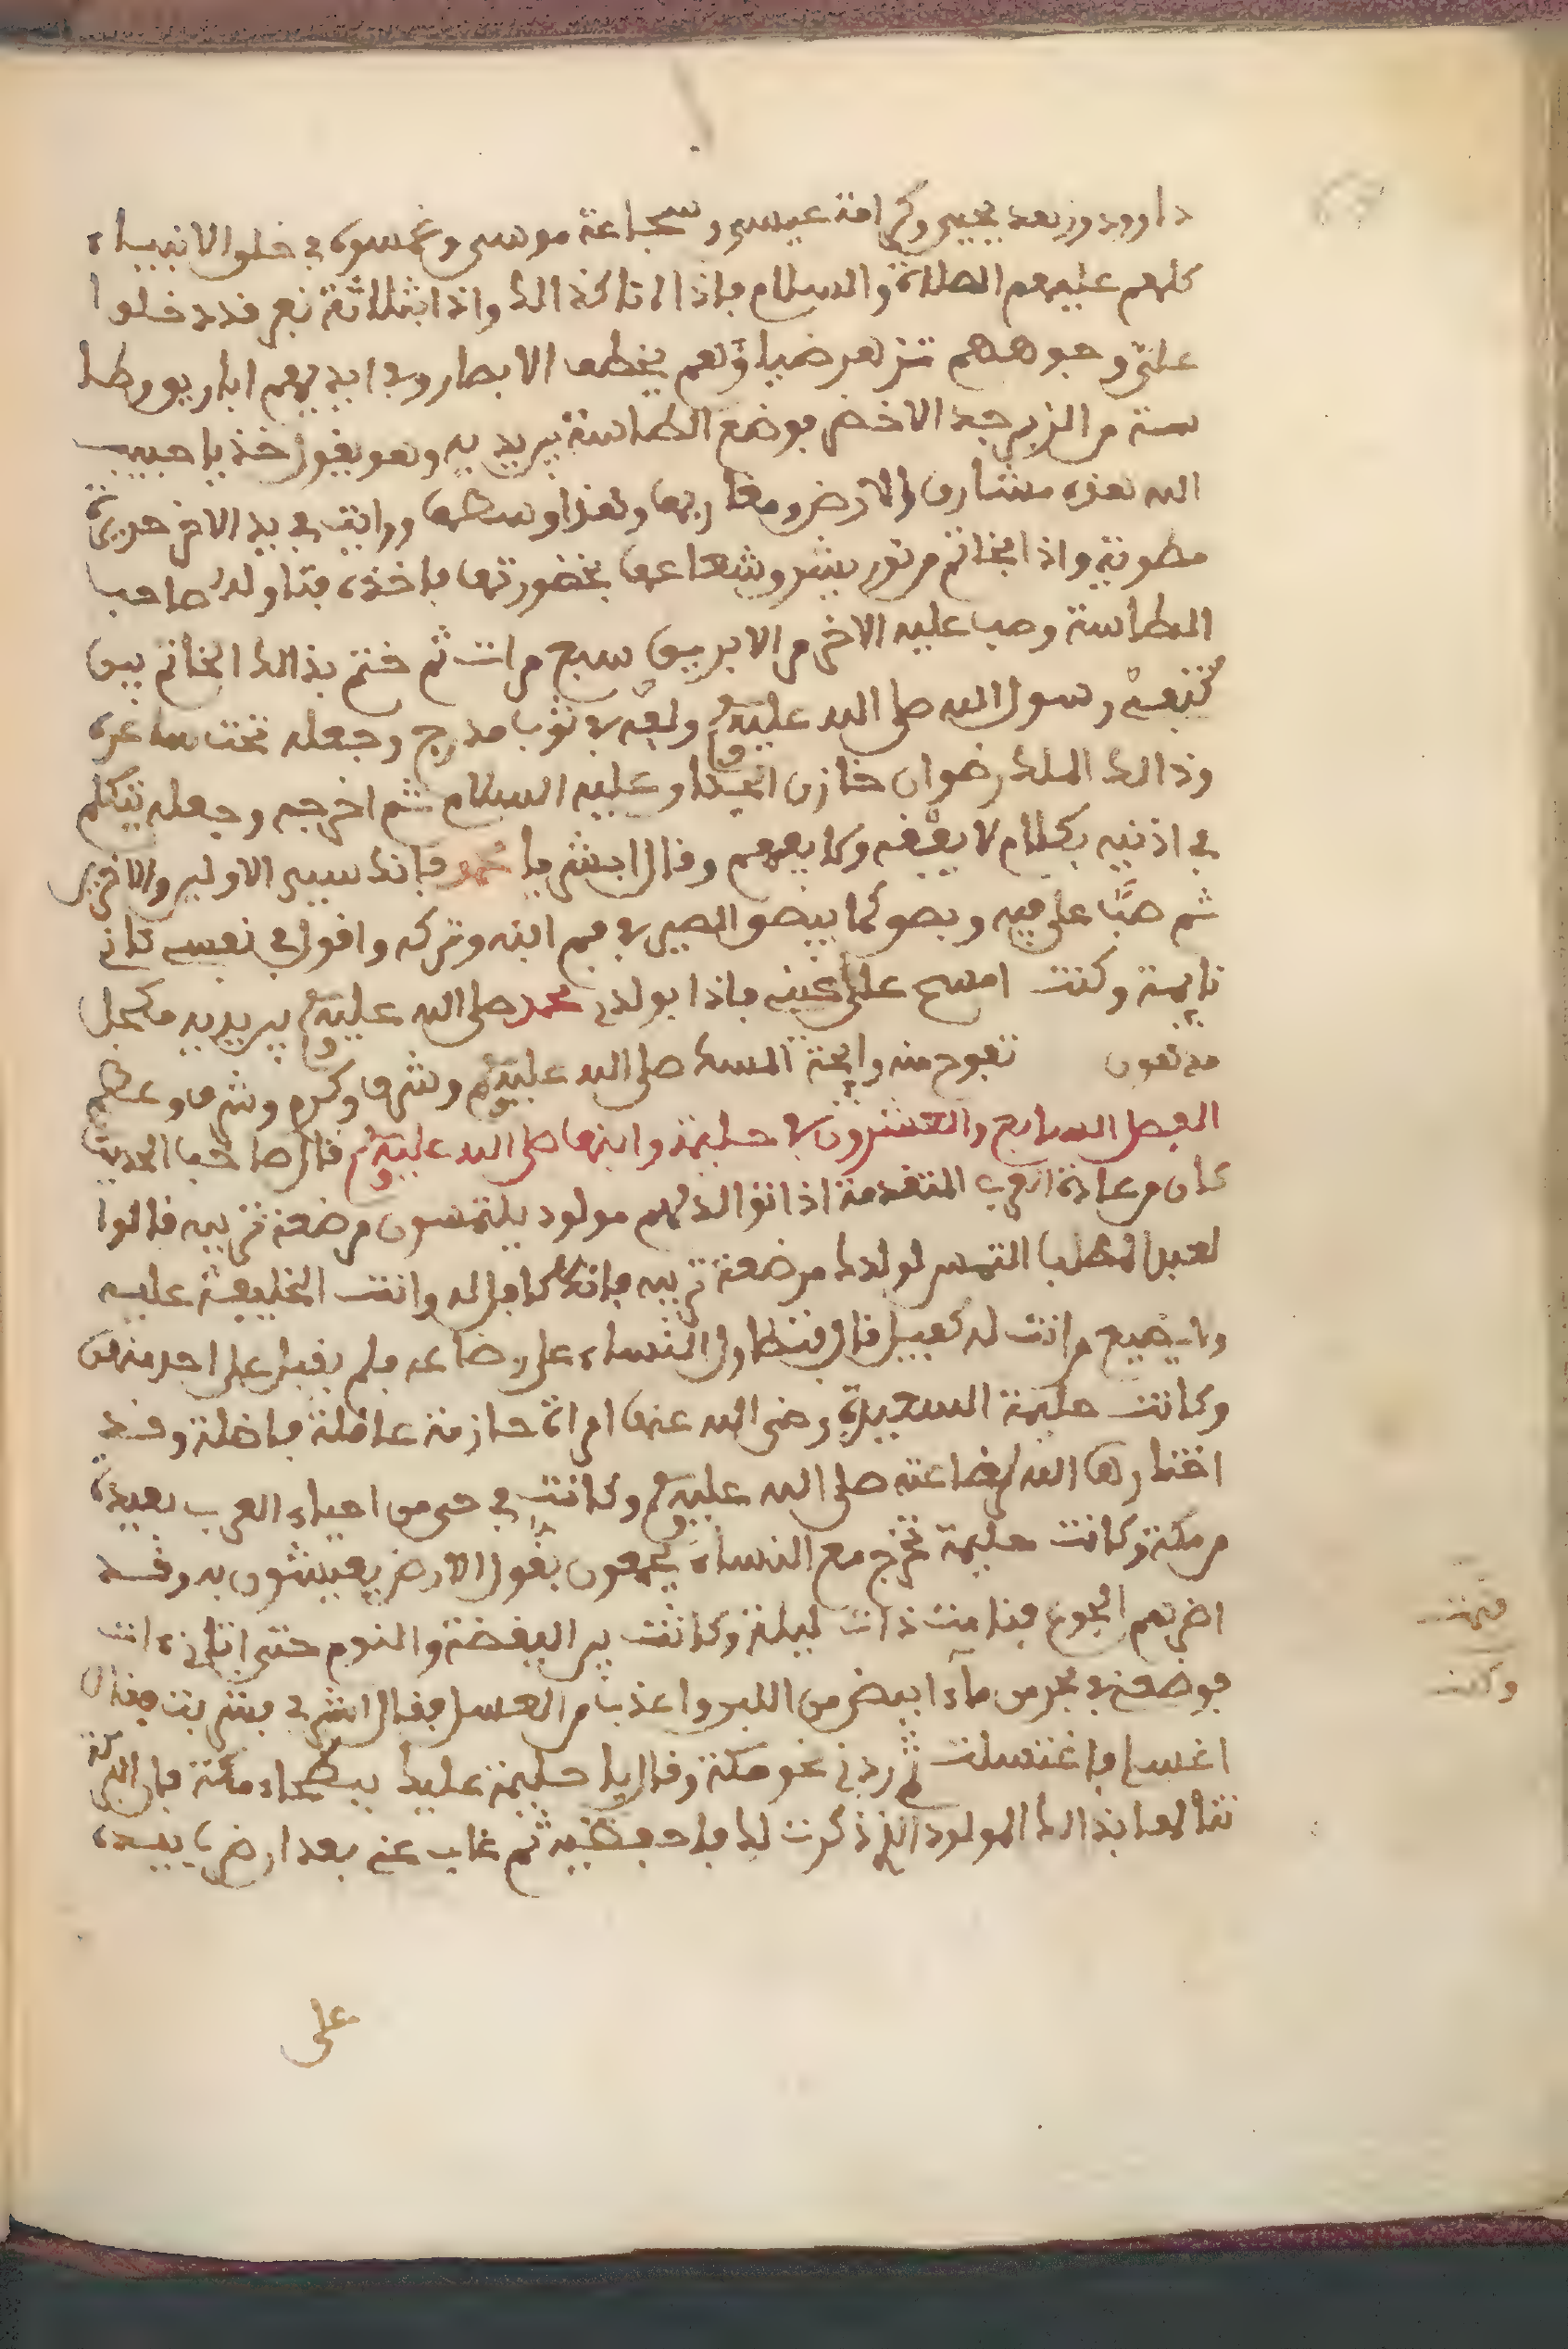 داوود وزهد يحيى وكرامة عيسى وشجاعة موسى وغمسوه في خلق الانبياء
كلهم عليهم الصلاة والسلام فاذا انا كذالك واذا بثلاثة نفر قد دخلوا
على وجوههم تزهر ضياؤهم يخطف الابصار وفي ايديهم اباريق وطا
ستة من الزبرجد الاخضر فوضع الطاسة بين يديه وهو يقول خذ يا حبيب
الله هذه مشارق الارض ومغاربها وهذا وسطها ورايت في يد الاخر حريرة
مطوية واذا بخاتم من نور يشرق شعاعها فاخذه فناوله صاحب
الطاسة وصب عليه الاخر من الابريق سبع مرات ثم ختم بذالك الخاتم بين
كتفي رسول الله صلى الله عليه وسلم ولفه في ثوب مدرج وجعله تحت ساعة
وذالك الملك رضوان خازن الجنان عليه السلام ثم اخرجه وجعله يتكلم
في اذنيه بكلام لا يفقه ولا يفهم وقال ابشر يا محمد فانك سيد الاولين والاخرين
ثم صبا على فيه وبصق كما يبصق الطير في فم ابنه وتركه واقول في نفسي كاني
نايمة وكنت امسح على عيني فاذا بولدي محمد صلى الله عليه وسلم بين يديه مكحل
مدهون تفوح منه رايحة المسك صلى الله عليه وسلم وشرف وكرم وشرف وعظم
الفصل السابع والعشرون في حليمة وابنها صلى الله عليه وسلم قال صاحب الحديث
كان من عادة العرب المتقدمة اذا توالد لهم مولود يلتمسون مرضعة تربيه فقالوا
لعبد المطلب التمس لولدك مرضعة تربيه فانك كافل له وانت الخليفة عليه
ولا يضيع من انت له كفيل قال فتطاول النساء على رضاعه فلم يقبل على احد منهن
وكانت حليمة السعدية رضي الله عنها امراة حازمة عاقلة فاضلة وقد
اختارها الله لرضاعته صلى الله عليه وسلم وكانت في حي من احياء العرب بعيدة
من مكة وكانت حليمة تخرج مع النساء يجمعون بقول الارض يعيشون به وقد
اضربهم الجوع فنامت ذات ليلة وكانت بين اليقضة والنوم حتى اتاني ات
فوضعني في بحر من ماء ابيض من اللبن واعذب من العسل فقال اشربي فشربت فقال
اغسلي فاغتسلت ثم ردني نحو مكة وقال يا حليمة عليك ببطحاء مكة فان البركة
تنالها بذالك المولود الذي ذكرت لك فاحفظيه ثم غاب عني بعد ان ضرب بيده
على
فهمت
وكنت